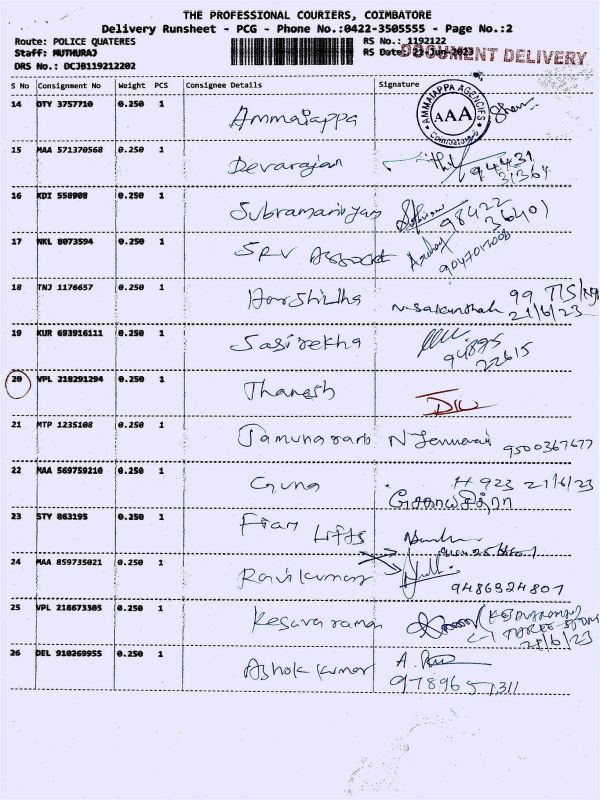 THE PROFESSIONAL COURIERS, COIMBATORE
Delivery Runsheet - PCG - Phone No.:0422-3505555 - Page No.:2
Route: POLICE QUATERES RS No.: 1192122
Staff: MUTHURAJ RS Date: 21-Jun-2023 DOCUMENT DELIVERY
DRS No.: DCJB119212202
S No Consignment No Weight PCS Consignee Details Signature
14 OTY 3757710 0.250 1 Ammaiappa AMMAIAPPA AGENCIES AAA Coimbatore
15 MAA 571370568 0.250 1 Devarajan 94431
31364
16 KDI 558908 0.250 1 Subramaniyan 98422
36401
17 NKL 8073594 0.250 1 SRV Associat
18 TNJ 1176657 0.250 1 Harshitha N. Sakunthala 99
21/6/23
19 KUR 693916111 0.250 1 Sasirekha
22615
20 VPL 218291294 0.250 1 Thanesh
21 MTP 1235108 0.250 1 Jamunarani 9500367677
22 MAA 569759210 0.250 1 Guna H 923 21/6/23
23 STY 863195 0.250 1 Fram Lifts
24 MAA 859735021 0.250 1 Ravikumar 9486924807
25 VPL 218673305 0.250 1 Kesavaraman (KESAVARAMAN)
21/6/23
26 DEL 910269955 0.250 1 Ashok kumar A.
9789651311